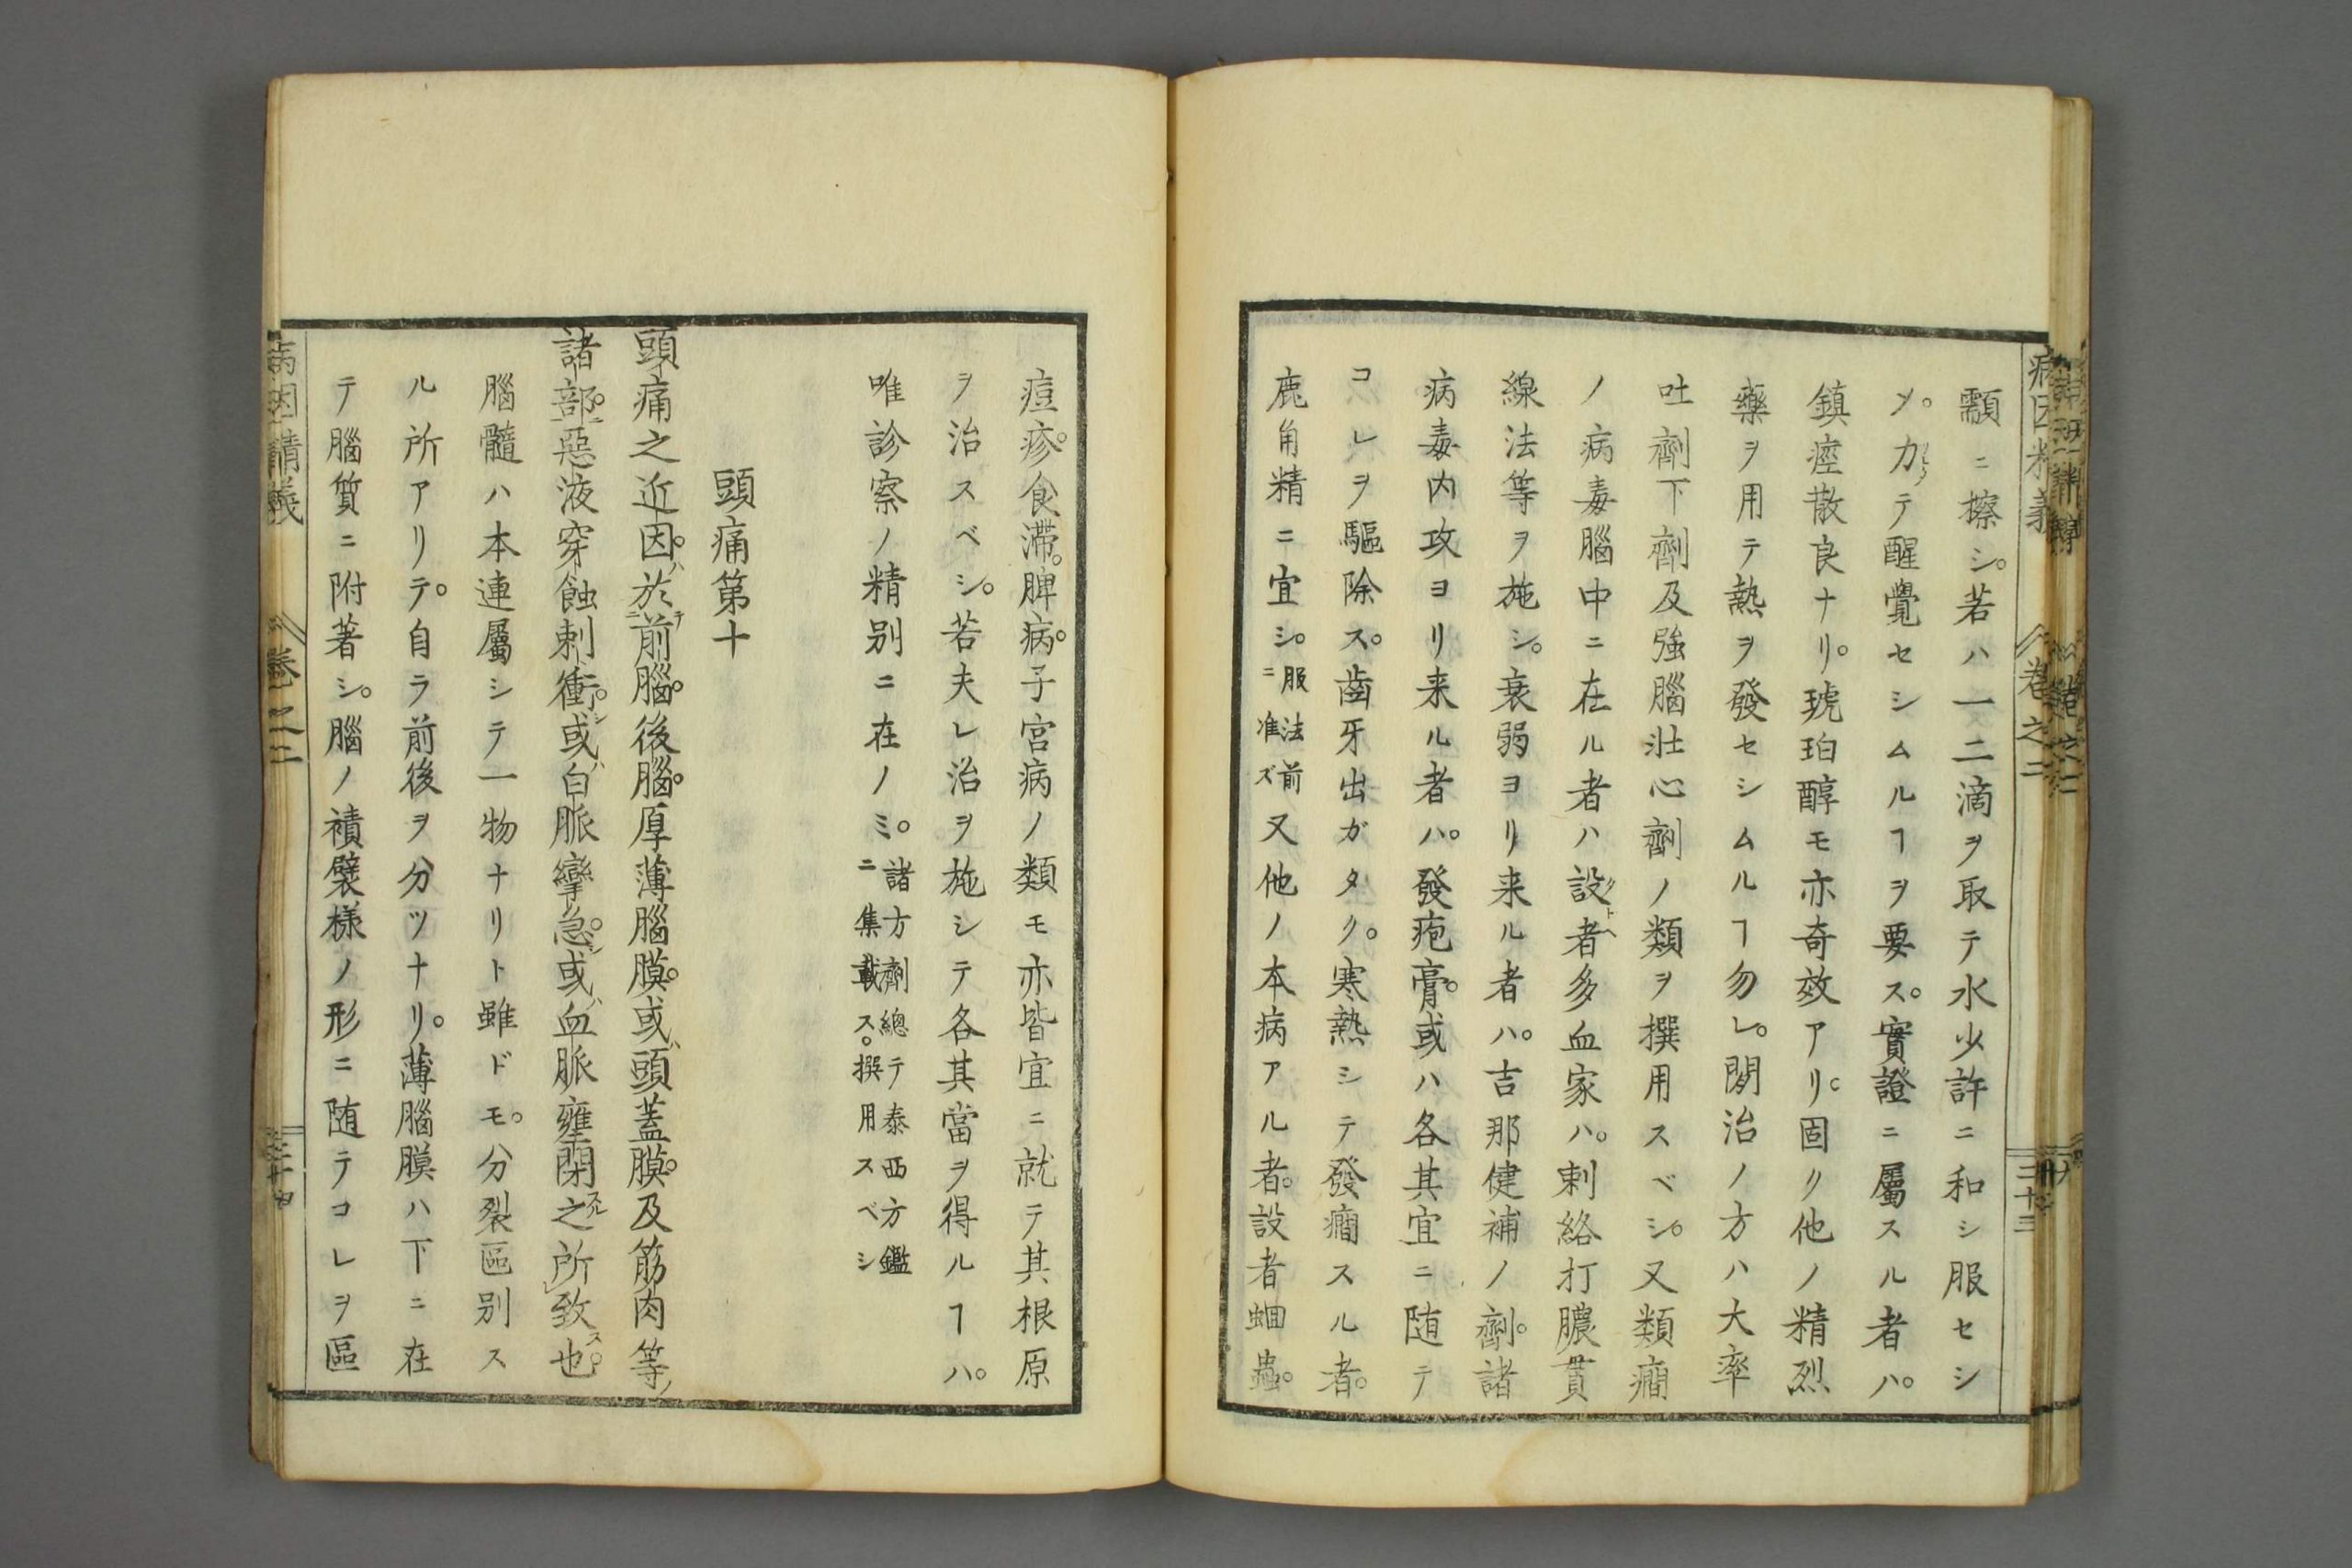 顬ニ擦シ。若ハ一二滴ヲ取テ水少許ニ和シ服セシ
メ。力テ醒覺セシムルヿヲ要ス。實證ニ屬スル者ハ。
鎮痙散良ナリ。琥珀醇モ亦奇效アリ。固ク他ノ精烈
藥ヲ用テ熱ヲ發セシムルヿ勿レ。閒治ノ方ハ大率
吐劑下劑及強腦壯心劑ノ類ヲ撰用スベシ。又類癇
ノ病毒腦中ニ在ル者ハ設者多血家ハ。刺絡打膿貫
線法等ヲ施シ。衰弱ヨリ来ル者ハ。吉那健補ノ劑。諸
病毒内攻ヨリ来ル者ハ。發疱膏。或ハ各其宜ニ随テ
コレヲ驅除ス。齒牙出ガタク。寒熱シテ發癇スル者。
鹿角精ニ宜シ。服法前ニ准ズ又他ノ本病アル者。設者蛔蟲。
病因精義 巻之二 三十三
痘疹。食滞。脾病。子宮病ノ類モ亦皆宜ニ就テ其根原
ヲ治スベシ。若夫レ治ヲ施シテ各其當ヲ得ルヿハ。
唯診察ノ精別ニ在ノミ。諸方劑總テ泰西方鑑ニ集載ス。撰用スベシ
頭痛第十
頭痛之近因。ハ於テ前腦。後腦。厚薄腦膜。或ハ頭蓋膜。及筋肉等ノ
諸部。惡液穿蝕刺衝。シ或ハ白脈攣急。シ或ハ血脈壅閉スル之所致ス也。
腦髓ハ本連屬シテ一物ナリト雖ドモ。分裂區別ス
ル所アリテ。自ラ前後ヲ分ツナリ。薄腦膜ハ下ニ在
テ腦質ニ附著シ。腦ノ襀襞様ノ形ニ随テコレヲ區
病因精義 巻之二 三十四